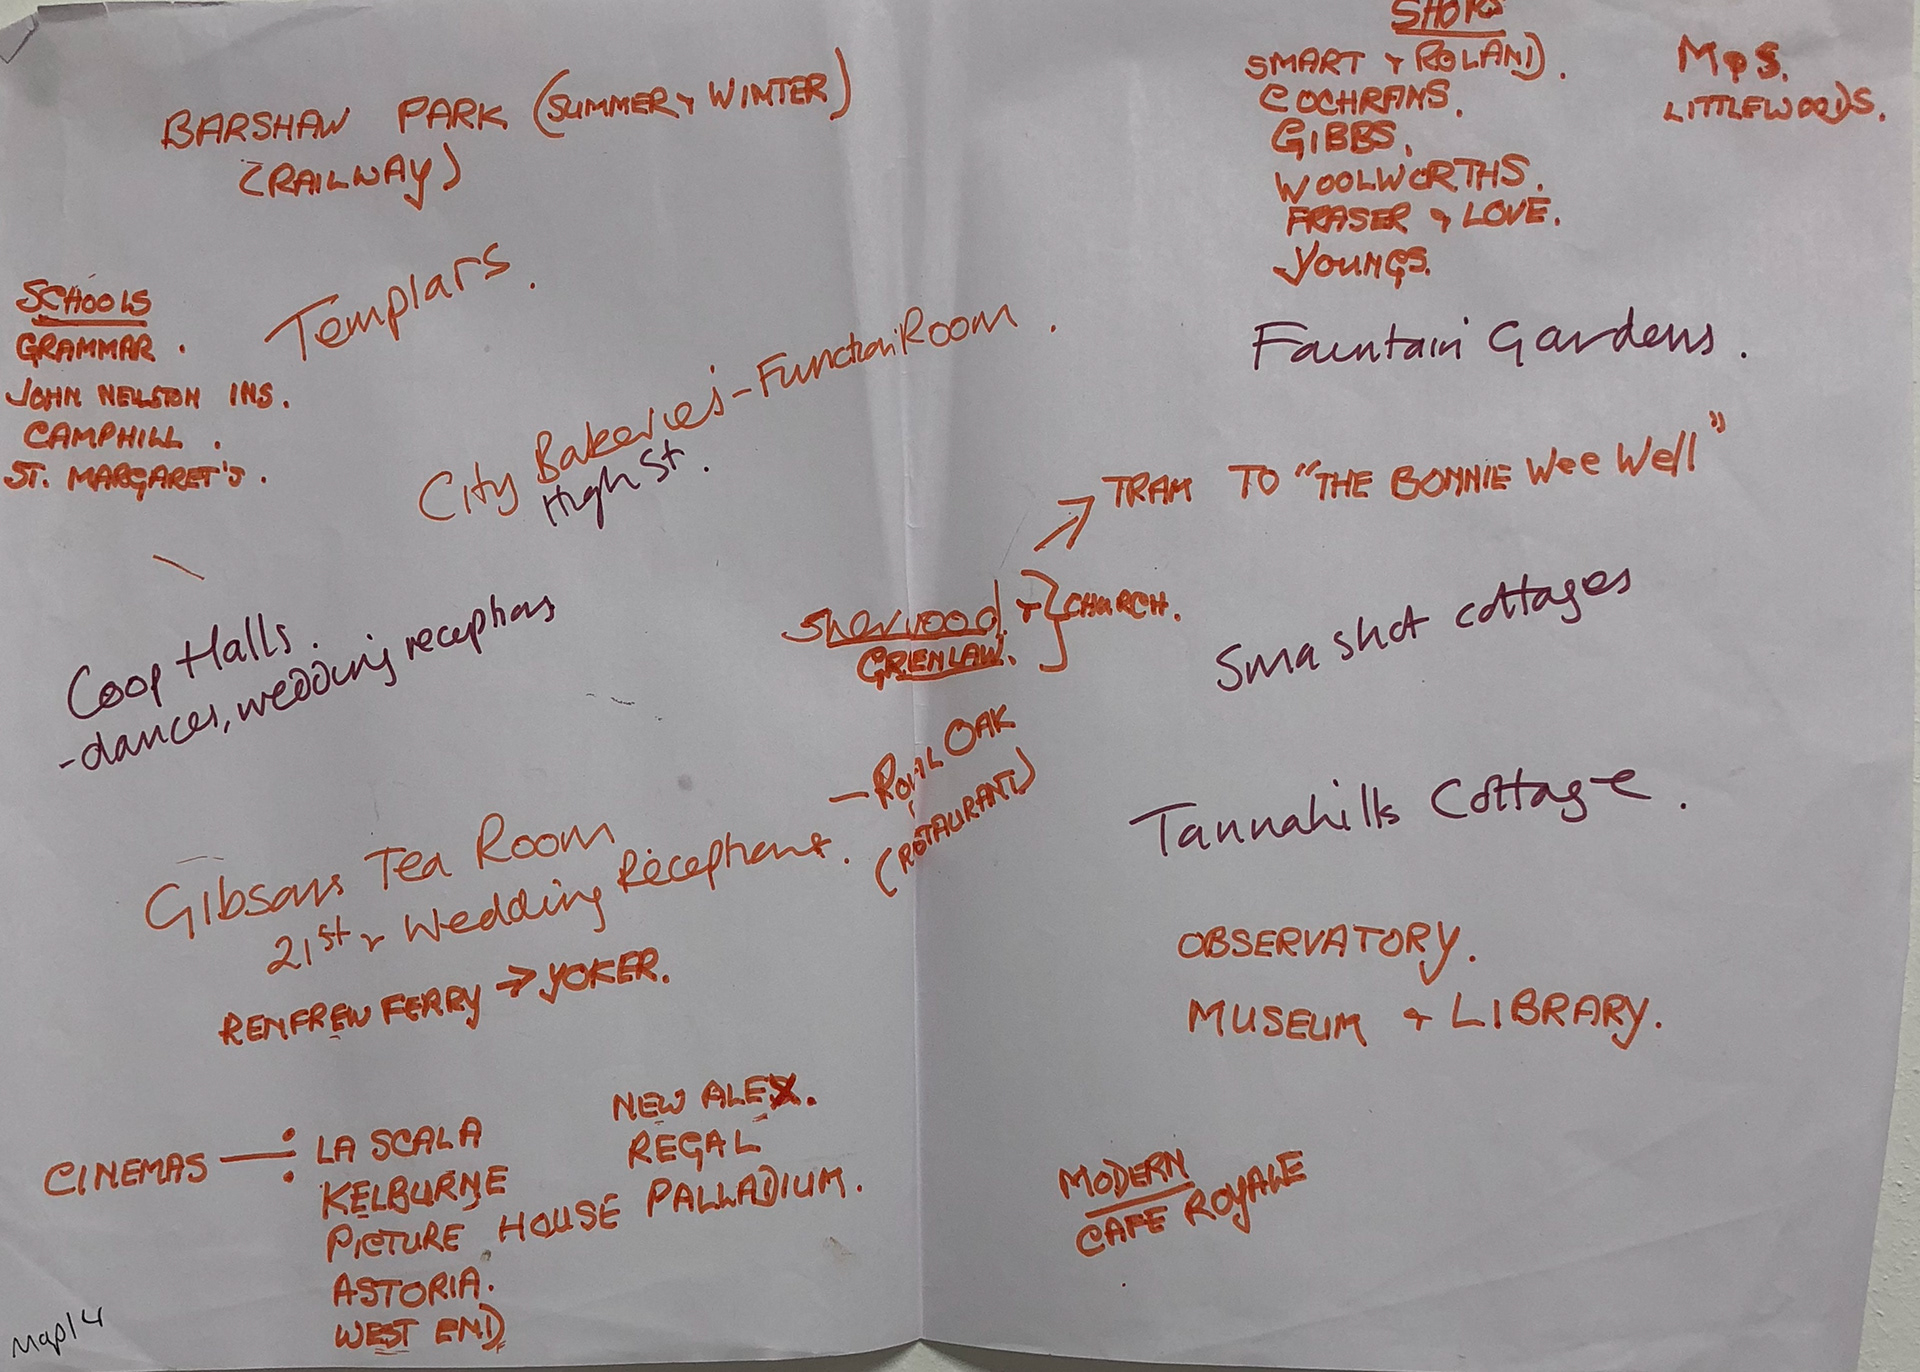 BARSHAW PARK (SUMMER & WINTER)
(RAILWAY)
SCHOOLS
GRAMMAR.
JOHN NEILSTON INS.
CAMPHILL.
ST. MARGARET'S.
Templars.
City Bakeries - Function Room.
High St.
Coop Halls.
- dances, wedding receptions
Gibsons Tea Room
21st & Wedding Receptions.
- ROYAL OAK
(RSTAURANT)
RENFREW FERRY → YOKER.
CINEMAS — : LA SCALA
KELBURNE
PICTURE HOUSE
ASTORIA.
WEST END
NEW ALEX.
REGAL
PALLADIUM.
Map 14
SHOPS
SMART & ROLAND.
COCHRANS.
GIBBS.
WOOLWORTHS.
FRASER & LOVE.
YOUNGS.
M&S.
LITTLEWOODS.
Fountain Gardens.
→ TRAM TO "THE BONNIE Wee Well"
Sherwood & } CHURCH.
GRENLAW.
Sma shot cottages
Tannahills Cottage.
OBSERVATORY.
MUSEUM & LIBRARY.
MODERN
CAFE ROYALE